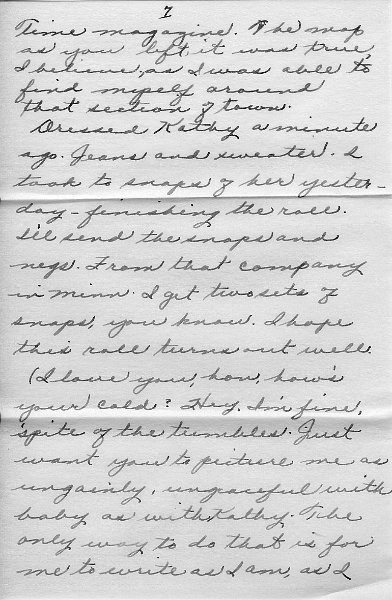 7
Time magazine. The map
as you left it was true,
I believe, as I was able to
find myself around
that section of town.
Dressed Kathy a minute
ago. Jeans and sweater. I
took to snaps of her yester-
day - finishing the roll.
I'll send the snaps and
negs. From that company
in Minn. I get two sets of
snaps, you know. I hope
this roll turns out well.
(I love you, hon, how's
your cold? Hey, I'm fine,
'spite of the tumbles. Just
want you to picture me as
ungainly, ungraceful with
baby as with Kathy. The
only way to do that is for
me to write as I am, as I